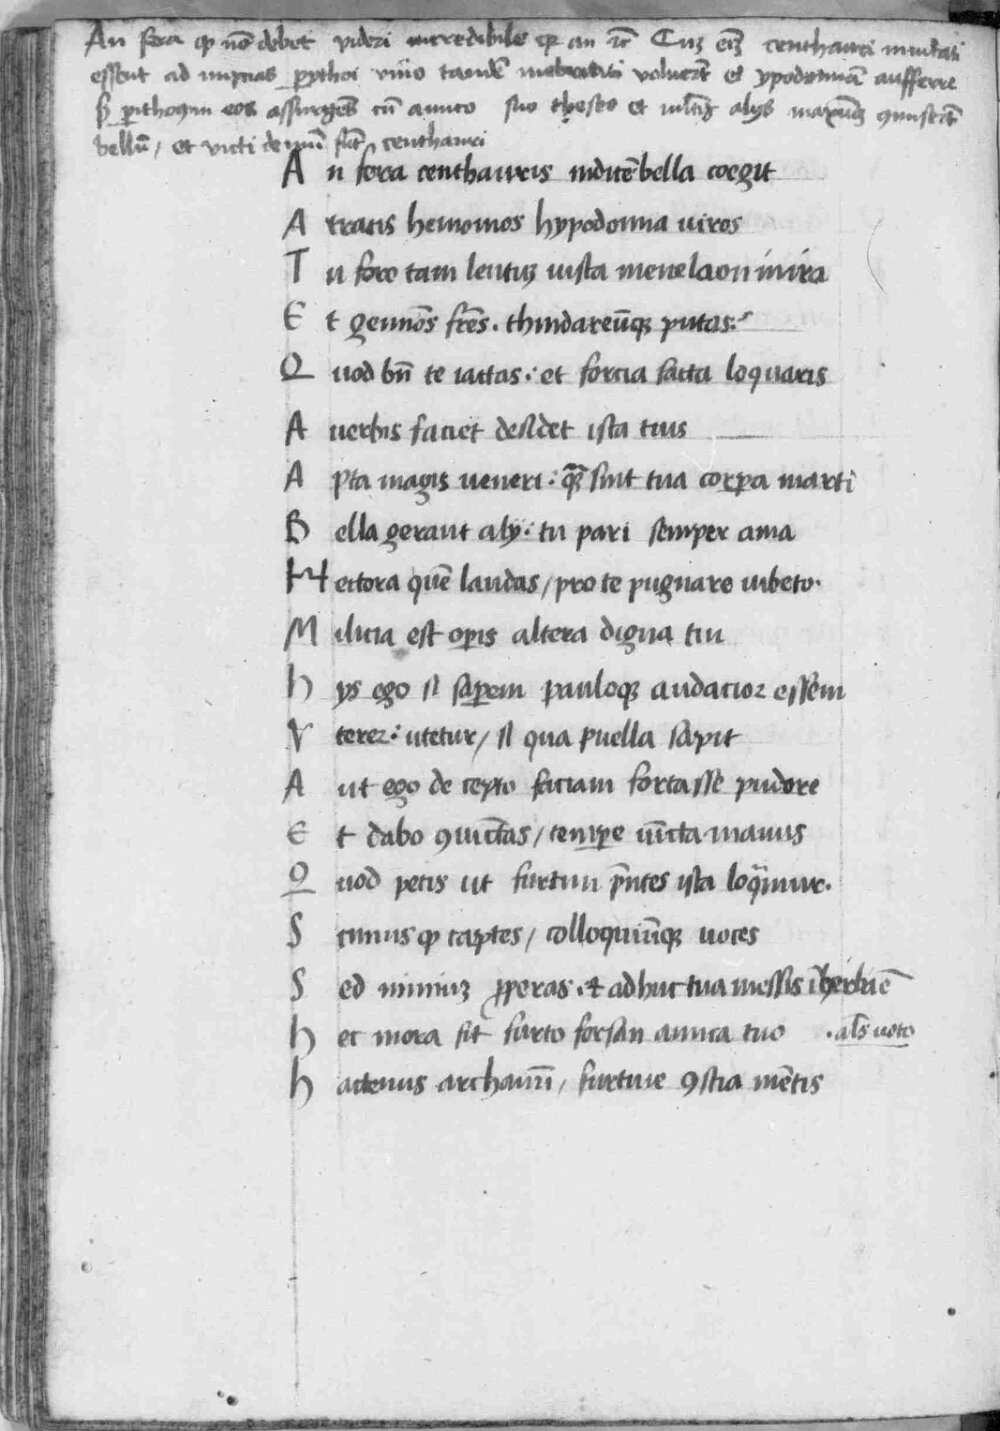 An fera qꝫ nō debet videri incredibile qꝫ an ić Cuꝫ eīꝫ centhauri inuitati
essent ad nuptias pythoi vino tandē inebriati voluerūt et ypodomiā aufferre
ꝑithoum eos assurgēs cū amico suo theseo et multis alys maximū ꝯmiserūt
bellū / et victi demū sūt centhauri
A n fera centhauris indicē bella coegit
A tracis hemonios hypodomia uiros
T u fore tam lentuꝫ iusta menelaon in ira
E t geminōs fr̄es . thindareūqꝫ putas :
Q uod bn̄ te iactas : et forcia facta loquaris
A uerbis faciet desidet ista tuis
A pta magis ueneri : qꝫ sint tua corꝑa marti
B ella gerant aly : tu pari semper ama
H ectora quē laudas / pro te pugnare iubeto .
M ilicia est oꝑis altera digna tui
h ys ego si saꝑem pauloqꝫ audacior essem
V terer : utetur / si qua puella sapit
A ut ego de cepto faciam fortasse pudore
E t dabo ꝯuictas / tempꝑe iūcta manus
Q uod petis ut furtim p̄ntes ista loq̄mur .
S cimus qꝫ captes / colloquiūqꝫ uoces
S ed nimiuꝫ ꝓperas . et adhuc tua messis ī herba ē
h ec mora sit furto forsan amica tuo . als̄ uoto
h actenus archanū / furtiue ꝯscia mētis